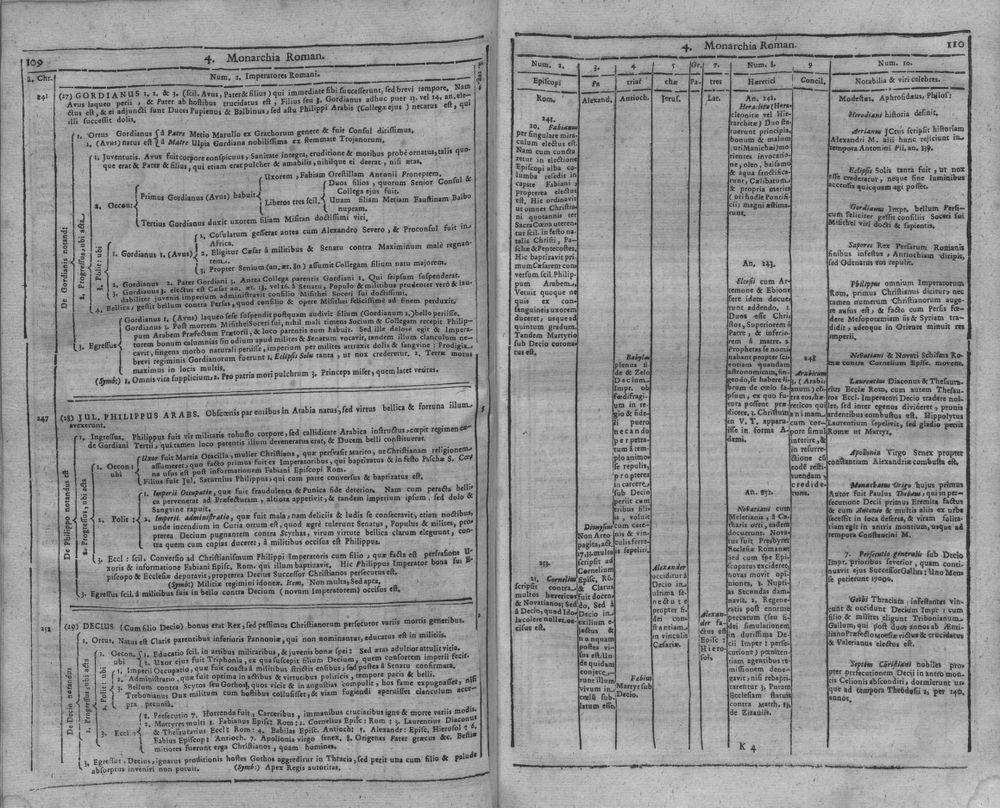 109
4. Monarchia Roman.
Num. 1. Imperatores Romani.
a. Chr.
241
(27) GORDIANUS 1, 2, & 3. (scil. Avus, Pater & filius) qui immediate sibi successerunt, sed brevi tempore. Nam
Avus laqueo periit, & Pater ab hostibus trucidatus est, Filius seu 3. Gordianus adhuc puer 13. vel 14. an. ele-
ctus est, & ei adjuncti sunt Duces Pupienus & Balbinus, sed astu Philippi Arabis (Collegæ ejus) necatus est, qui
illi successit dolis.
De Gordianis notandi
1. Ortus Gordianus
1. (Avus) natus est
à Patre Metio Marullo ex Grachorum genere & fuit Consul ditissimus,
à Matre Ulpia Gordiana nobilissima ex stemmate Trojanorum,
2. Progressus, ubi acta
1. Juventutis. Avus fuit corpore conspicuus, Sanitate integra, eruditione & moribus probè ornatus, talis quo-
que erat & Pater & filius, qui etiam erat pulcher & amabilis, nihilque ei deerat, nisi ætas.
2. Oecon:
Primus Gordianus (Avus) habuit
Uxorem, Fabiam Orestillam Antonii Proneptem.
Liberos tres scil.
Duos filios, quorum Senior Consul &
Collega ejus fuit.
Unam filiam Metiam Faustinam Balbo
nuptam.
Tertius Gordianus duxit uxorem filiam Misithei doctissimi viri,
3. Polit: ubi
1. Gordianus 1. (Avus)
1. Consulatum gesserat antea cum Alexandro Severo, & Proconsul fuit in
Africa.
2. Eligitur Cæsar à militibus & Senatu contra Maximinum malè regnan-
tem.
3. Propter Senium (an. æt. 80) assumit Collegam filium natu majorem.
2. Gordianus 2. Pater Gordiani 3. Antea Collega parentis Gordiani 1. Qui seipsum suspenderat.
3. Gordianus 3. electus est Cæsar an. æt. 13. vel 16. à Senatu, Populo & militibus prudenter verò & lau-
dabiliter juvenis imperium administravit consilio Misithei Soceri sui doctissimi.
4. Bellica, gessit bellum contra Persas, quod consilio & opere Misithei felicissimè ad finem perduxit.
3. Egressus
Gordianus 1. (Avus) laqueo sese suspendit postquam audivit filium (Gordianum 2.) bello periisse.
Gordianus 3. Post mortem Misithei Soceri sui, nihil mali timens Socium & Collegam recepit Philip-
pum Arabem Præfectum Prætorii, & loco parentis eum habuit. Sed ille dolosè egit & Impera-
torem bonum calumniis fin odium apud milites & Senatum vocavit, tandem illum clanculum ne-
cavit, fingens morbo naturali periisse, imperium per milites attraxit dolis & sanguine: Prodigia
brevi regiminis Gordianorum fuerunt 1. Eclipsis Solis tanta, ut nox crederetur. 2. Terræ motus
maximus in locis multis.
(Symb:) 1. Omnis vita supplicium, 2. Pro patria mori pulchrum 3. Princeps miser, quem latet veritas.
247
(28) JUL. PHILIPPUS ARABS. Obscœnis parentibus in Arabia natus, sed virtus bellica & fortuna illum
avexerunt.
De Philippo notandus est
1. Ingressus, Philippus fuit vir militaris robusto corpore, sed calliditate Arabica instructus, cœpit regimen cæ-
de Gordiani Tertii, qui tamen loco parentis illum deveneratus erat, & Ducem belli constituerat.
2. Progressus, ubi acta
1. Oecon:
ubi
Uxor fuit Marcia Otacilla, mulier Christiana, quæ persuasit Marito, ut Christianam religionem
assumeret, quo facto primus fuit ex Imperatoribus, qui baptizatus & in festo Paschæ S. Cœ-
na usus est post informationem Fabiani Episcopi Rom.
Filius fuit Jul. Saturnius Philippus, qui cum patre conversus & baptizatus est.
2. Polit:
1. Imperii Occupatio, quæ fuit fraudulenta & Punica fide deterior. Nam cum peracto belli-
ca pervenerat ad Præfecturam, altiora appetivit, & tandem imperium ipsum sed dolo &
Sanguine rapuit.
2. Imperii administratio, quæ fuit mala, nam deliciis & ludis se consecravit, etiam noctibus,
unde incendium in Curia ortum est, quod ægrè tulerunt Senatus, Populus & milites, pro-
pterea Decium pugnantem contra Scythas, virum virtute bellica clarum elegerunt, con-
tra quem cum copias duceret, à militibus occisus est Philippus.
3. Eccl: scil. Conversio ad Christianismum Philippi Imperatoris cum filio, quæ facta est persuasione U-
xoris & informatione Fabiani Episc. Rom. qui illum baptizavit. Hic Philippus Imperator bona sua E-
piscopo & Ecclesiæ deputavit, propterea Decius Successor Christianos persecutus est.
(Symb:) Militiæ regimini idoneæ. Item, Non multa, Sed apta,
3. Egressus scil. à militibus fuit in bello contra Decium (novum Imperatorem) occisus est,
252
(29) DECIUS (Cum filio Decio) bonus erat Rex, sed pessimus Christianorum persecutor variis mortis generibus.
De Decio notandus
1. Ortus, Natus est Claris parentibus inferioris Pannoniæ, qui non nominantur, educatus est in militiis.
2. Progressus, ubi acta
1. Oecon.
ubi
1. Educatio scil. in artibus militaribus, & juvenis bonæ spei: Sed ætas adultior attulit vitia.
2. Uxor ejus fuit Triphonia, ex qua suscepit filium Decium, quem consortem imperii fecit.
2. Polit: ubi
1. Imperii Occupatio, quæ fuit coacta à militibus strictis ensibus, sed postea à Senatu confirmata.
2. Administratio, quæ fuit optima in actibus & virtutibus politicis, tempore pacis & belli.
3. Bellum contra Scytas seu Gothos, quos vicit & in angustias compulit, hos fame expugnasset, nisi
Trebonianus Dux militum cum hostibus collusisset, & viam fugiendi aperuisset clanculum acce-
pta pecunia.
3. Eccl:
1. Persecutio 7. Horrenda fuit, Carceribus, immannibus cruciatibus igne & morte variis modis.
2. Martyres multi 1. Fabianus Episc: Rom: 2. Cornelius Episc: Rom: 3. Laurentius Diaconus
& Thesaurarius Eccl: Rom: 4. Babilas Episc. Antioch: 5. Alexand: Episc: Hierosol: 6.
Fabius Episcop: Antioch. 7. Apollonia virgo senex, 8. Origenes Pater græcus &c. Bestiæ
mitiores fuerunt erga Christianos, quam homines.
3. Egressus, Decius, ignarus proditionis hostes Gothos aggreditur in Thracia, sed periit una cum filio & palude
absorptus inveniri non potuit. (Symb:) Apex Regis autoritas.
4. Monarchia Roman.
110
Num. 2.
3
4
5
Gr.
7.
Num. 8.
9
Num. 10.
Episcopi
Pa
triar
chæ
Pa-
tres
Hæretici
Concil.
Notabilia & viri celebres.
Rom.
Alexand,
Antioch.
Jerus.
Lat.
241.
20. Fabianus
per singulare mira-
culum electus est.
Nam cum cuncta-
retur in electione
Episcopi alba co-
lumba resedit in
capite Fabiani;
propterea electus
est, Hic ordinavit
ut omnes Christia-
ni quotannis ter
Sacra Cœna uteren-
tur scil. in festo na-
talis Christi, Pa-
schæ & Pentecostes.
Hic baptizavit pri-
mum Cæsarem con-
versum scil. Philip-
pum Arabem.
Vetuit quoque ne
quis ex con-
sanguineis uxorem
duceret, usque ad
quintum gradum.
Tandem Martyrio
sub Decio corona-
tus est,
253.
21. Cornelius
scripsit contra
multos hæreticos
& Novatianos; Sed
à Decio, quod Ido-
la colere nollet, oc-
cisus est.
Dionysius
Non Areo-
pagita, act.
17, 18. multa
scripsit ad
Cornelium
Episc. Rō.
& Clarus
fuit docen-
do, Sed à
Decio in
exilium e-
jectus &
nonquam
postea vi-
sus est. Un-
de quidam
conjece-
runt illum
vivum in
cœlū sub-
latum esse.
Babylas
plenus fi-
de & Zelo
Decium,
Impr. ob
fœdifragi-
um in re-
gio & fide-
li puero
necando
perpetra-
tum à tem-
plo animo-
sè repulit,
propterea
in carcere,
sub Decio
periit cum
tribus fili-
is, voluit
cum cate-
nis & vin-
culis ferre-
is sepeliri.
Fabius
Martyr sub
Decio.
Alexander
occiditur à
Decio in
ultima se-
nectute
propter fi-
dei con-
stantiam,
in vinculis
Cæsariæ.
Alexan-
der fa-
ctus est
Episc:
Hiero-
sol,
An. 241.
Heraclitæ (Hera-
cleonitæ vel Hie-
rarchitæ) Duo sta-
tuerunt principia,
bonum & malum
(uti Manichæi) mo-
rientes invocatio-
ne, oleo, balsamo
& aqua sanctifica-
runt, Cælibatum
& propria merita
(uti hodie Pontifi-
cii) magni æstima-
runt.
An. 243.
Elcesii cum Ar-
temone & Ebione
ferè idem docue-
runt addendo. 1.
Duos esse Chri-
stos, Superiorem à
Patre, & inferio-
rem à matre. 2.
Prophetas se nomi-
nabant propter sci-
entiam quandam
astronomicam, fin-
gendo, se habere li-
brum de cœlo la-
psum, ex quo fu-
tura possent præ-
dicere. 3. Christum
in V. T. apparu-
isse in forma A-
dami.
An. 252.
Novatiani cum
Meletianis, à Ca-
tharis orti, eadem
docuerunt. Nova-
tus fuit Presbyter
Ecclesiæ Romanæ
Sed cum spe Epi-
scopatus excideret,
novas movit opi-
niones, 1. Nupti-
as Secundas dam-
navit. 2. Regene-
ratis post enorme
peccatum (seu fi-
dei simulationem
in durissima De-
cii Impr: perse-
cutione) pœniten-
tiam agentibus re-
missionem dene-
gavit, nisi rebapti-
zarentur 3. Putam
Ecclesiam statuit
contra Matth. 13.
de Zizaniis.
248
Arabicum
3. (Arabi-
anum) cō-
tra eos, hæ-
reticos qui
animam
cum cor-
pore simul
interire, &
in resurre-
ctione eō-
odē resti-
tuendam
credide-
runt.
Modestus, Aphrodisæus, Philos:
Herodiani historia desinit.
Arrianus JCtus scripsit historiam
Alexandri M. alii hunc rejiciunt in
tempora Antonini Pii, an. 139.
Eclipsis Solis tanta fuit, ut nox
esse crederatur, neque sine luminibus
accensis quicquam agi posset.
Gordianus Impr. bellum Persi-
cum feliciter gessit consiliis Soceri sui
Misithei viri docti & sapientis,
Sapores Rex Persarum Romanis
finibus infestus, Antiochiam diripit,
sed Odenatus eos repulit.
Philippus omnium Imperatorum
Rom, primus Christianus dicitur; nec
tamen numerum Christianorum auge-
re ausus est, & facto cum Persis fœ-
dere Mesopotamiam iis & Syriam tra-
didit, adeoque in Oriente minuit res
imperii.
Novatiani & Novati Schisma Ro-
mæ contra Cornelium Episc. movem.
Laurentius Diaconus & Thesaura-
rius Eccliæ Rom, cum autem Thesau-
ros Eccl. Imperatori Decio tradere nol-
let, sed inter egenos divideret, prunis
ardentibus combustus est. Hippolytus
Laurentium sepelivit, sed gladio periit
Romæ ut Martyr.
Apollonia Virgo Senex propter
constantiam Alexandriæ combusta est.
Monachatus Origo hujus primus
Autor fuit Paulus Thebæus, qui in per-
secutione Decii primus Eremita factus
& cum Antonio & multis aliis ex urbe
secessit in loca deserta, & vitam solita-
riam egit in antris montium, usque ad
tempora Constantini M.
7. Persecutio generalis sub Decio
Impr. prioribus severior, quam conti-
nuavit ejus Successor Gallus: Uno Mense
se petierunt 17000.
Gothi Thraciam infestantes vin-
cunt & occidunt Decium Impr: cum
filio & milites eligunt Tribonianum
Gallum, qui post duos annos ab Æmi-
liano Præfecto Mœsiæ victus & crucidatus
& Valerianus electus est.
Septem Christiani nobiles pro-
pter persecutionem Decii in antro mon-
tis Celionis absconditi, dormierunt us-
que ad tempora Theodosii 2, per 140.
annos,
K 4